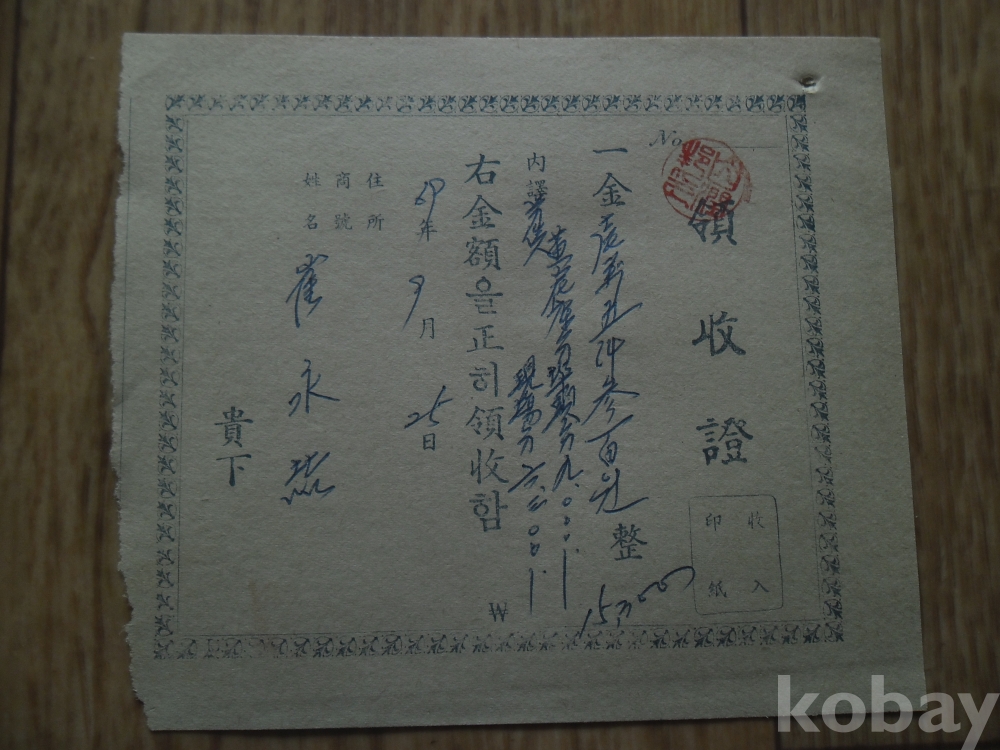 No.
領收證
收入
印紙
一金壱萬五仟參百원整
15,300
內譯
現場分 六.三〇〇
₩
右金額을正히領收함
69年 9月 25日
住所
商號
姓名
崔永燕
貴下
kobay